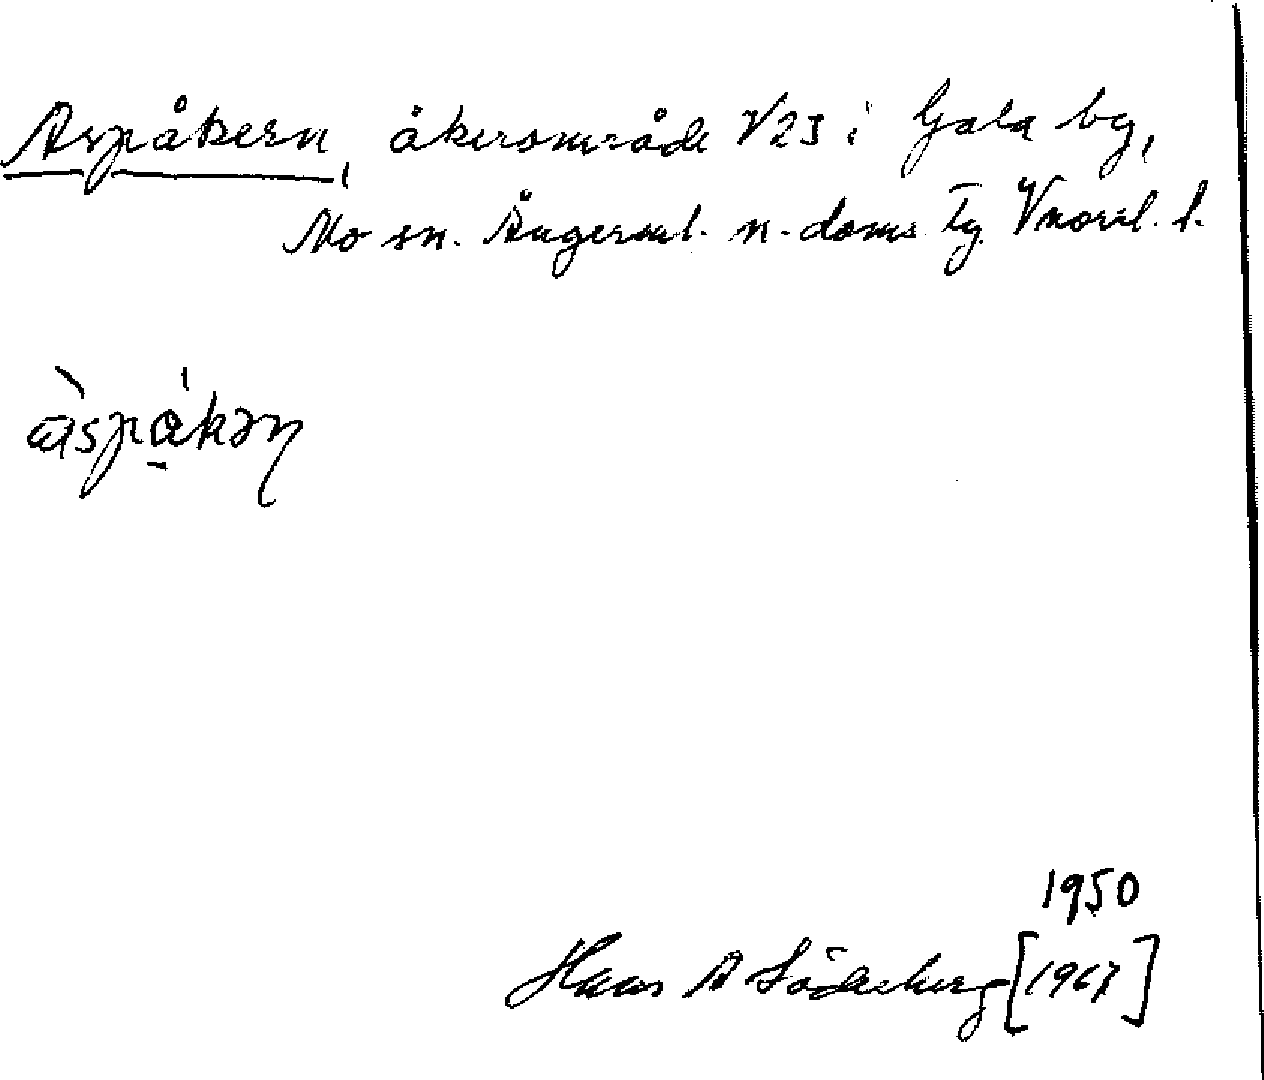 Aspåkern, åkerområde V23 i Gala by,
Mo sn. Ångerml. n. doms Tg Vnorrl. l.
àspåkəɳ
1950
Hans A Söderberg [1967]